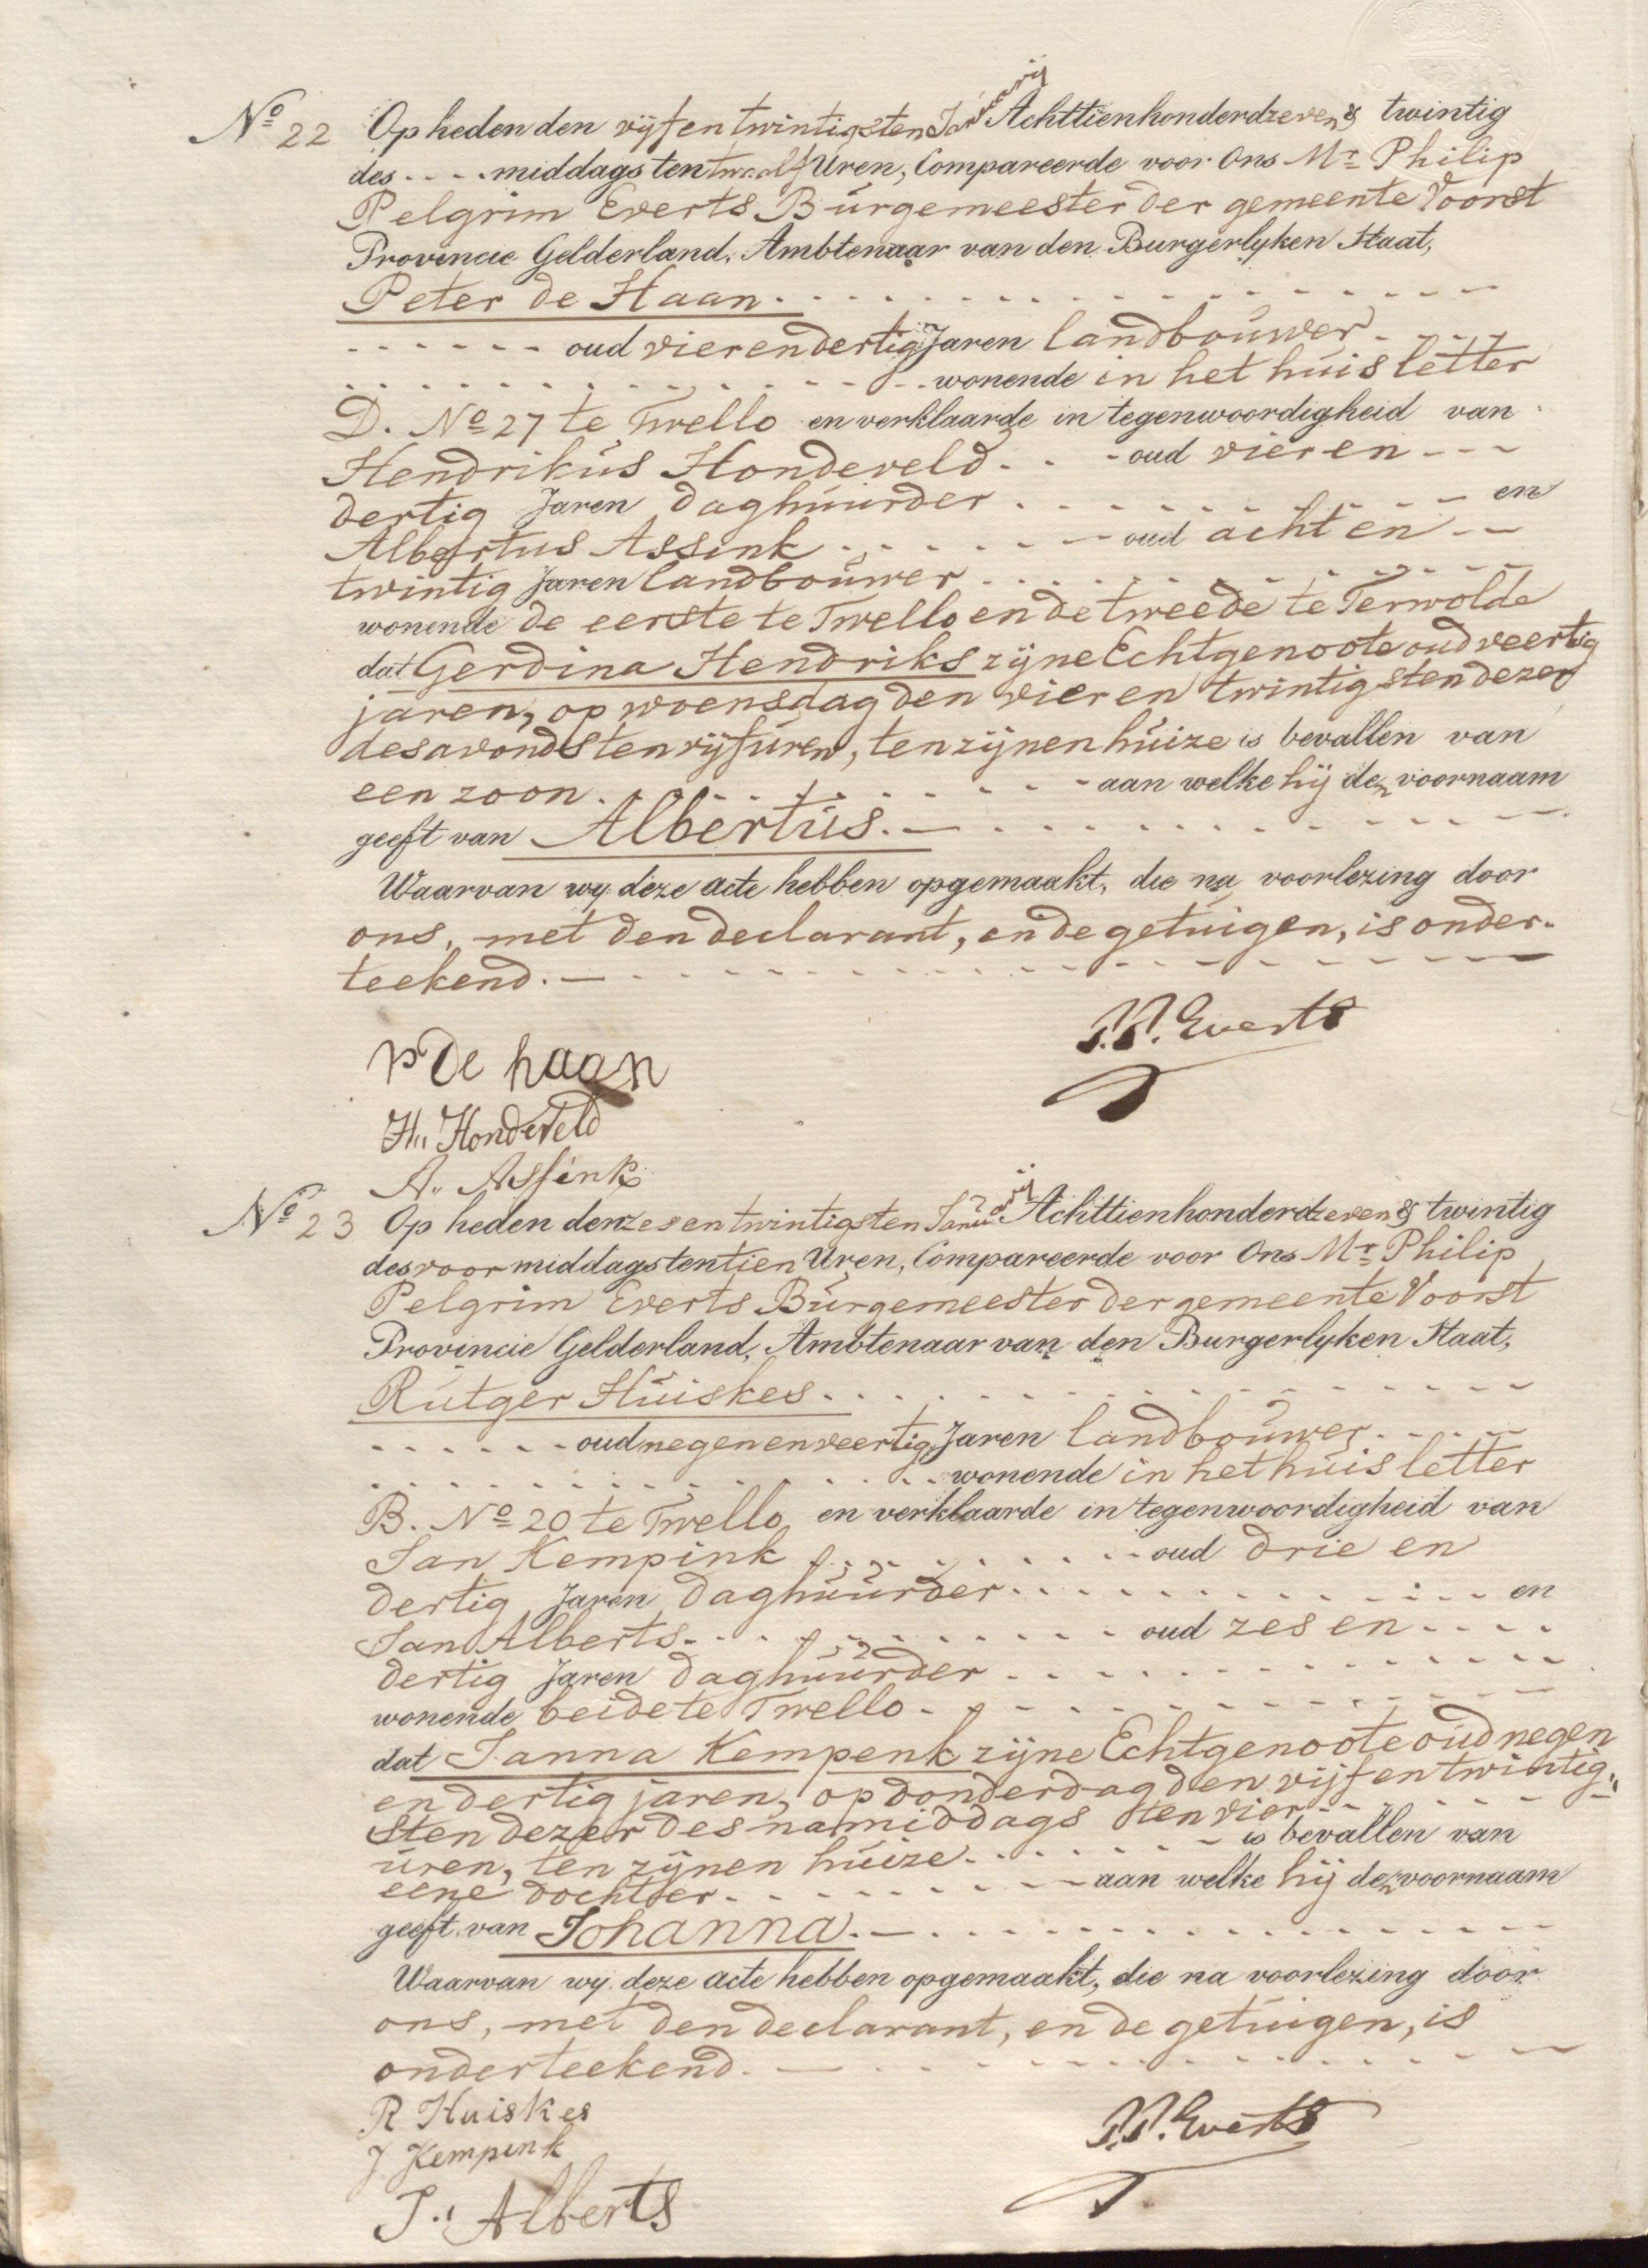 No 22 Op heden den vijfentwintigsten Januarij Achttienhonderdzeven & twintig
des .... middags ten twaalf Uren, Compareerde voor Ons Mr Philip
Pelgrim Everts Burgemeester der gemeente Voorst
Provincie Gelderland, Ambtenaar van den Burgerlyken Staat,
Peter de Haan
oud vierendertig Jaren landbouwer
wonende in het huis letter
D. No 27 te Twello en verklaarde in tegenwoordigheid van
Hendrikus Hondeveld oud vier en
dertig Jaren daghuurder en
Albertus Assink oud acht en
twintig Jaren landbouwer
wonende de eerste te Twello en de tweede te Terwolde
dat Gerdina Hendriks zijne Echtgenoote oud veertig
jaren, op woensdag den vier en twintigsten dezer
des avonds ten vijf uren, ten zijnen huize is bevallen van
een zoon aan welke hij den voornaam
geeft van Albertus.
Waarvan wy deze acte hebben opgemaakt, die na voorlezing door
ons, met den declarant, en de getuigen, is onder-
teekend.
P.P. Everts
P De haan
H,, Hondeveld
A,, Assink
No 23 Op heden den zesentwintigsten Januarij Achttienhonderdzeven & twintig
des voormiddags ten tien Uren, Compareerde voor Ons Mr Philip
Pelgrim Everts Burgemeester der gemeente Voorst
Provincie Gelderland, Ambtenaar van den Burgerlyken Staat,
Rutger Huiskes
oud negenenveertig Jaren landbouwer
wonende in het huis letter
B. No 20 te Twello en verklaarde in tegenwoordigheid van
Jan Kempink oud drie en
dertig Jaren daghuurder en
Jan Alberts oud zes en
dertig Jaren daghuurder
wonende beide te Twello
dat Janna Kempenk zijne Echtgenoote oud negen
en dertig jaren, op donderdag den vijfentwintig,,
sten dezer des namiddags ten vier
uren, ten zijnen huize is bevallen van
eene dochter aan welke hij den voornaam
geeft van Johanna.
Waarvan wy deze acte hebben opgemaakt, die na voorlezing door
ons, met den declarant, en de getuigen, is
onderteekend.
R Huiskes
P.P. Everts
J Kempink
J,, Alberts